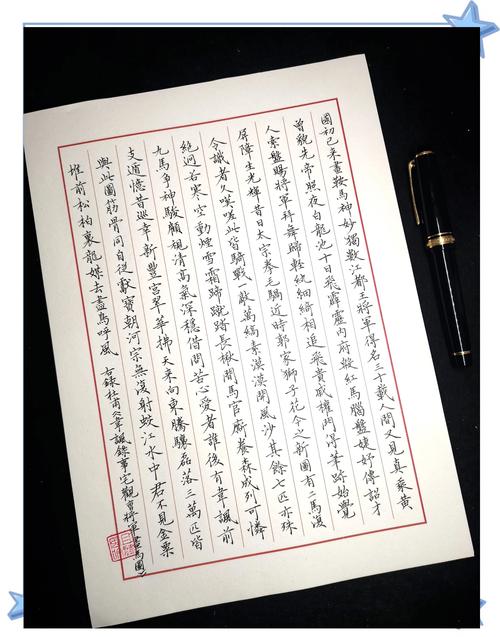 國初已來畫鞍馬神妙獨數江都王將軍得名三十載人間又見真乘黃
曾貌先帝照夜白龍池十日飛霹靂內府殷紅馬腦盤婕妤傳詔才
人索盤賜將軍拜舞歸輕紈細綺相追飛貴戚權門得筆跡始覺
屏障生光輝昔日太宗拳毛騧近時郭家獅子花今之新圖有二馬復
令識者久嘆嗟此皆騎戰一敵萬縞素漠漠開風沙其餘七匹亦殊
絕迥若寒空動煙雪霜蹄蹴踏長楸間馬官廝養森成列可憐
九馬爭神駿顧視清高氣深穩借問苦心愛者誰後有韋諷前
支遁憶昔巡幸新豐宮翠華拂天來向東騰驤磊落三萬匹皆
與此圖筋骨同自從獻寶朝河宗無復射蛟江水中君不見金粟
堆前松柏裏龍媒去盡鳥呼風 右錄杜甫《韋諷錄事宅觀曹將軍畫馬圖》